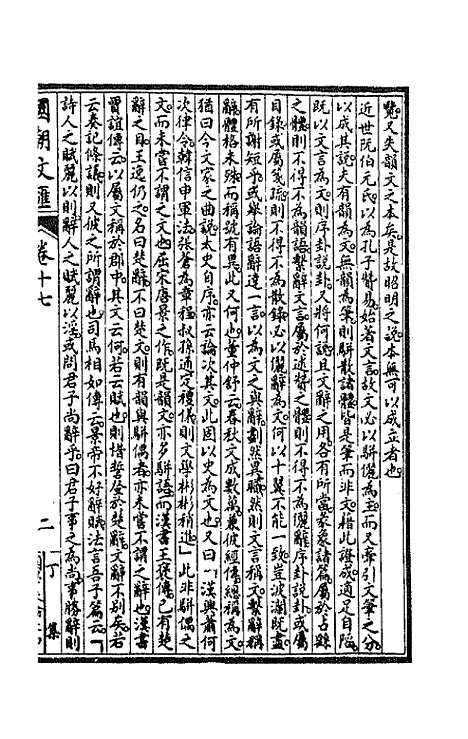 覽又失韻文之本矣是故昭明之說本無可以成立者也
近世阮伯元氏以為孔子贊易始著文言故文必以駢儷為主而又牽引文筆之分
以成其說夫有韻為文無韻為筆則駢散諸體皆是筆而非文藉此證成適足自陷
既以文言為文則序卦說卦又將何說且文辭之用各有所當彖象諸篇屬於占繇
之體則不得不為韻語繫辭文言屬於述贊之體則不得不為儷辭序卦說卦或屬
目錄或屬箋疏則不得不為散錄必以儷辭為文何以十翼不能一致豈波瀾既盡
有所謝短乎或舉論語辭達一言以為文之與辭劃然異職然則文言稱文繫辭稱
辭體格未殊而稱號有異此又何也董仲舒云春秋文成數萬兼彼經傳總稱為文
猶曰今文家之曲說太史自序亦云論次其文此固以史為文又曰漢興蕭何
次律令韓信申軍法張蒼為章程叔孫通定禮儀則文學彬彬稍進」此非駢偶之
文而未嘗不謂之文也屈宋唐景之作既是韻文亦多駢語而漢書王褒傳已有楚
辭之目王逸仍之名曰楚辭不曰楚文則有韻與駢偶者亦未嘗不謂之辭也漢書
賈誼傳云以屬文稱於郡中其文云何若云賦也則惜誓登於楚辭文辭不別矣若
云奏記條議則又彼之所謂辭也司馬相如傳云景帝不好辭賦法言吾子篇云「
詩人之賦麗以則辭人之賦麗以淫或問君子尚辭乎曰君子事之為尚事勝辭則
國朝文匯
卷十七
二
丁
集